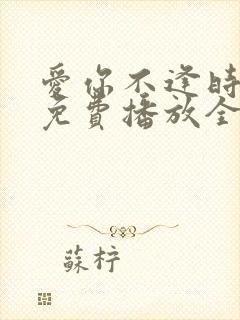 愛你不逢時
免費播放全
蘇柠